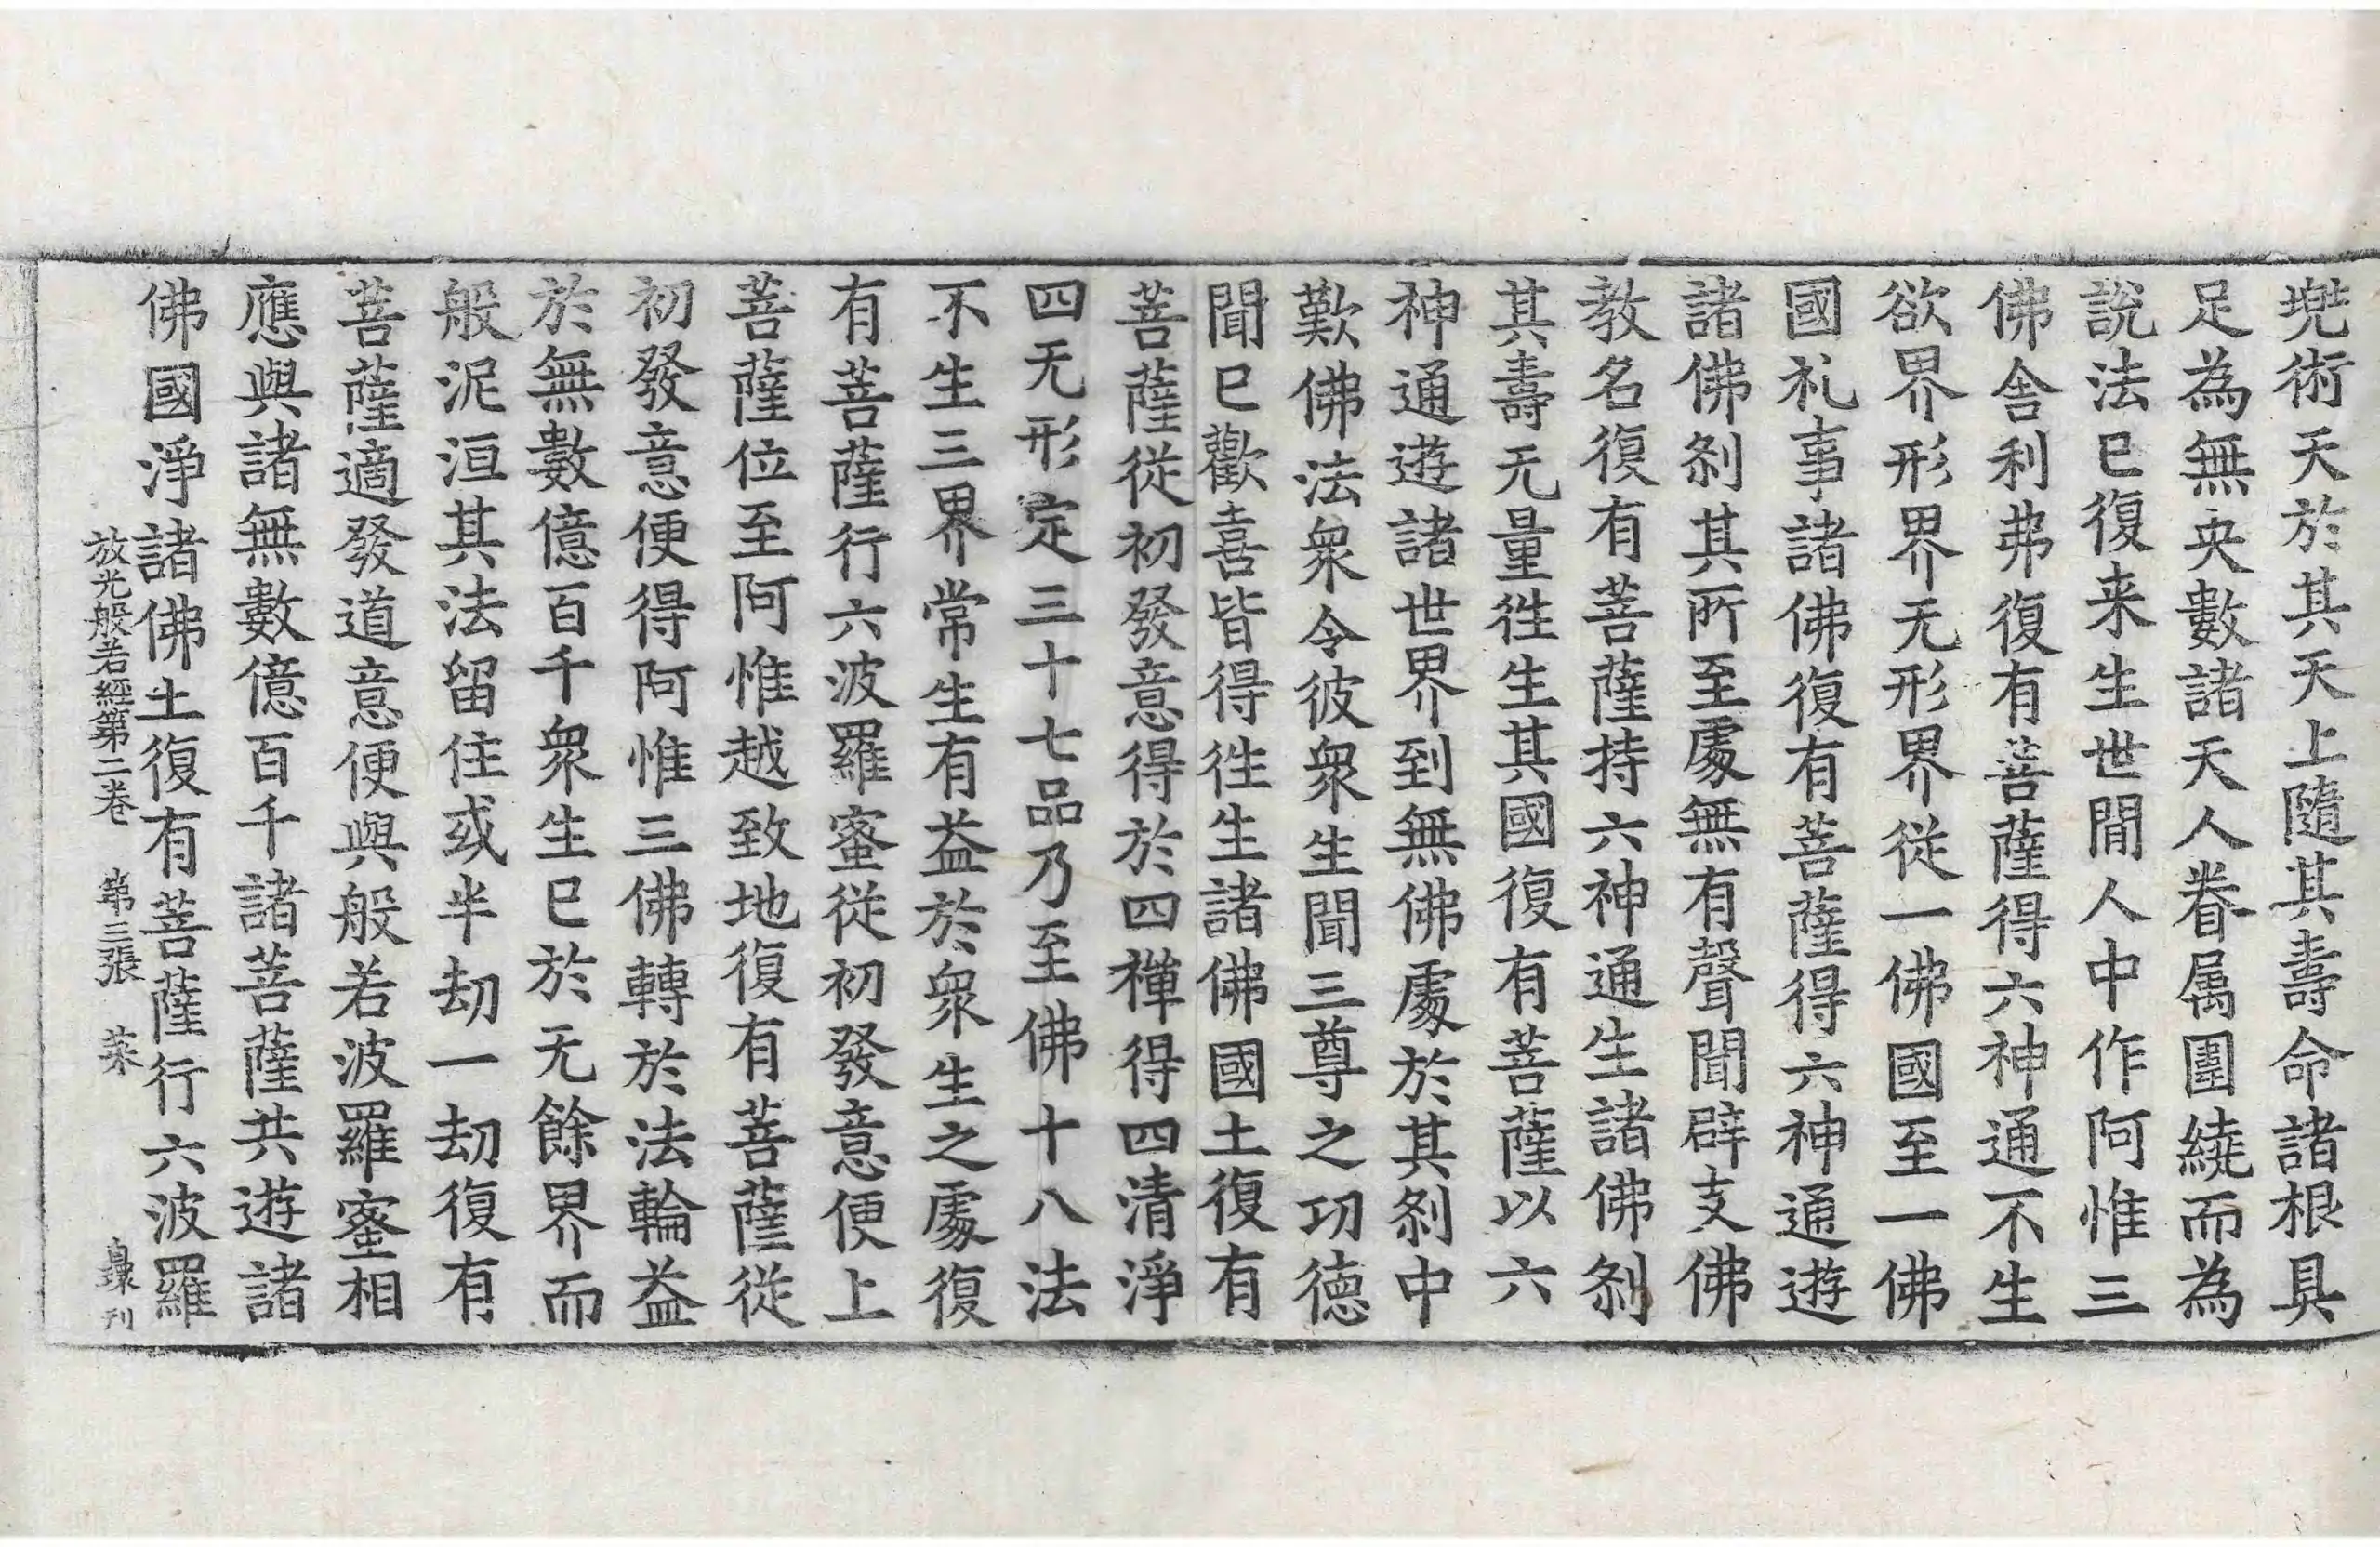 兠術天於其天上隨其壽命諸根具
足為無央數諸天人眷属圍繞而為
說法已復来生世間人中作阿惟三
佛舎利弗復有菩薩得六神通不生
欲界形界无形界従一佛國至一佛
國礼事諸佛復有菩薩得六神通遊
諸佛刹其所至處無有聲聞辟支佛
教名復有菩薩持六神通生諸佛刹
其壽无量徃生其國復有菩薩以六
神通遊諸世界到無佛處於其刹中
歎佛法衆令彼衆生聞三尊之功德
聞已歡喜皆得徃生諸佛國土復有
菩薩從初發意得於四禅得四清淨
四无形定三十七品乃至佛十八法
不生三界常生有益於衆生之處復
有菩薩行六波羅蜜從初發意便上
菩薩位至阿惟越致地復有菩薩從
初發意便得阿惟三佛轉於法輪益
於無數億百千衆生已於无餘界而
般泥洹其法留住或半劫一劫復有
菩薩適發道意便與般若波羅蜜相
應與諸無數億百千諸菩薩共遊諸
佛國淨諸佛土復有菩薩行六波羅
放光般若經第二卷 第三張 菜
刊